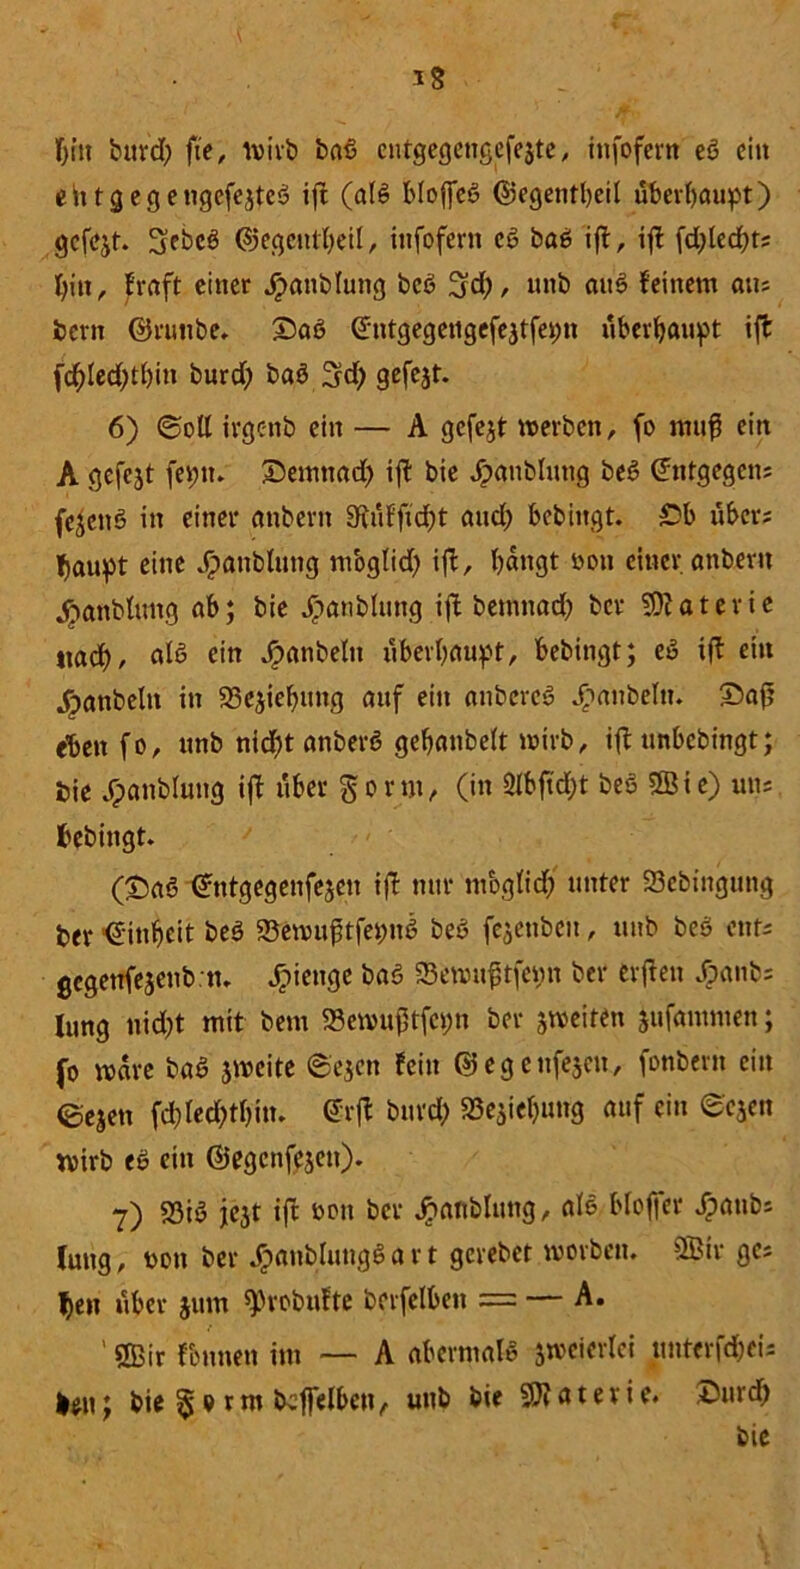 18
hin durch sie, wird das entgegengesezte, insofern es ein
entgegengeseztes ist (als blosses Gegentheil überhaupt)
gesezt. Jedes Gegentheil, insofern es das ist, ist schlecht-
hin, kraft einer Handlung des Ich, und aus keinem an-
dern Grunde. Das Entgegengeseztseyn überhaupt ist
schlechthin durch das Ich gesezt.
6) Soll irgend ein — A gesezt werden, so muß ein
A gesezt seyn. Demnach ist die Handlung des Entgegen-
sezens in einer andern Rükksicht auch bedingt. Ob über-
haupt eine Handlung möglich ist, hängt von einer andern
Handlung ab; die Handlung ist demnach der Materie
nach, als ein Handeln überhaupt, bedingt; es ist ein
Handeln in Beziehung auf ein anderes Handeln. Daß
eben so, und nicht anders gehandelt wird, ist unbedingt;
die Handlung ist über Form, (in Absicht des Wie) un-
bedingt.
(Das Entgegensezen ist nur möglich unter Bedingung
der Einheit des Bewußtseyns des sezenden, und des ent-
gegensezend:n. Hienge das Bewußtseyn der ersten Hand-
lung nicht mit dem Bewußtseyn der zweiten zusammen;
so wäre das zweite Sezen kein Gegensezen, sondern ein
Sezen schlechthin. Erst durch Beziehung auf ein Sezen
wird es ein Gegensezen).
7) Bis jezt ist von der Handlung, als blosser Hand-
lung, von der Handlungsart geredet worden. Wir ge-
hen über zum Produkte derselben = — A.
Wir können im — A abermals zweierlei unterschei-
den; die Form desselben, und die Materie. Durch
die